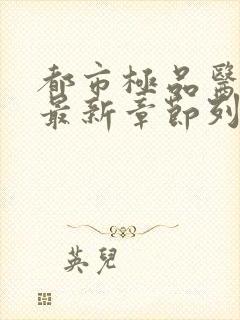 都市極品醫
最新章節列
英兒